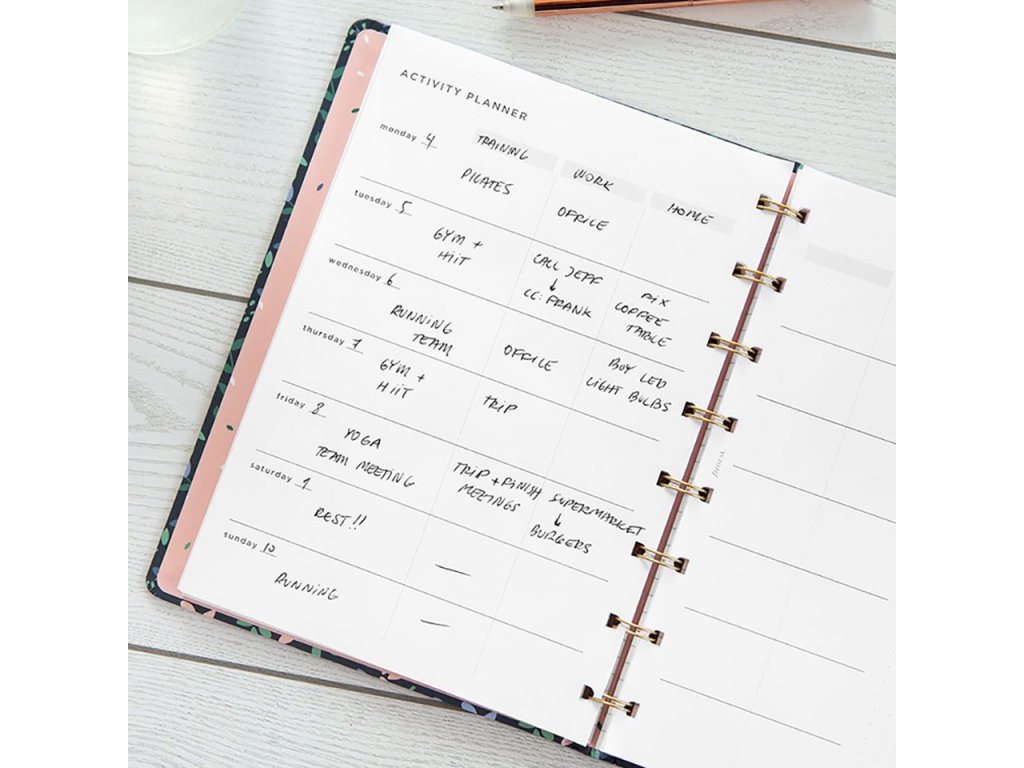 ACTIVITY PLANNER
TRAINING WORK HOME
monday 4
PILATES OFFICE
tuesday 5
GYM + CALL JEFF FIX
HIIT ↓ COFFEE
CC: FRANK TABLE
wednesday 6
RUNNING OFFICE BUY LED
TEAM LIGHT BULBS
thursday 7
GYM + TRIP
HIIT
friday 8
YOGA TRIP + FINISH SUPERMARKET
TEAM MEETING MEETINGS ↓
BURGERS
saturday 9
REST!! —
sunday 10
RUNNING —